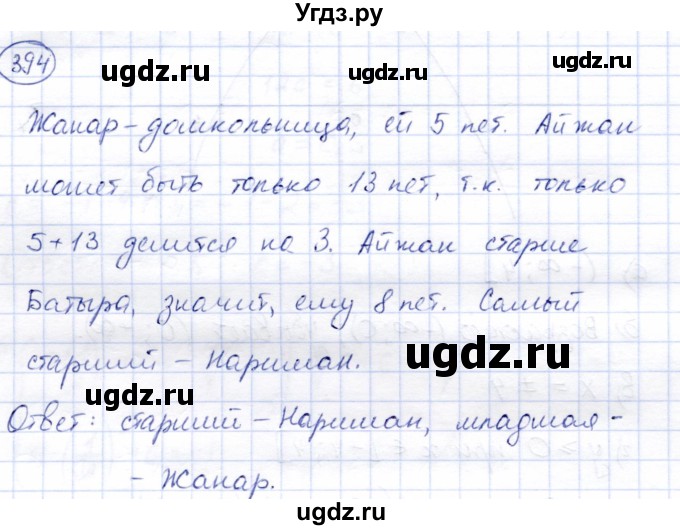 Угдз.ру
394
ugdz.ru ugdz.ru ugdz.ru
Жанар – дошкольница, ей 5 лет. Айжан
может быть только 13 лет, т.к. только
5+13 делится на 3. Айжан старше
Батыра, значит, ему 8 лет. Самый
старший – Нариман.
ugdz.ru ugdz.ru
Ответ: старший – Нариман, младшая –
– Жанар.
ugdz.ru ugdz.ru
ugdz.ru